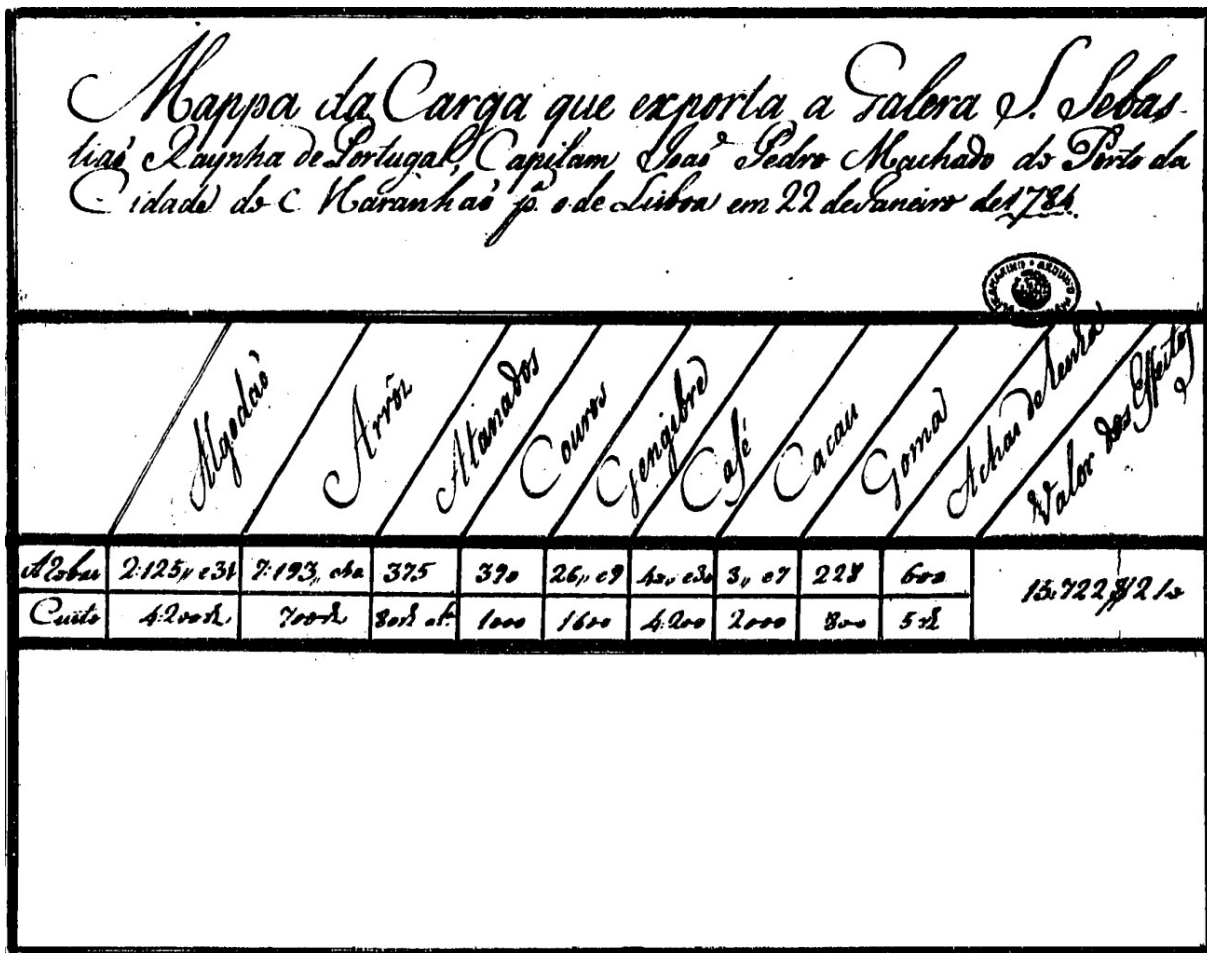 Mappa da Carga que exporta a Galera S. Sebas-
tiaõ Raynha de Portugal, Capitam Joaõ Pedro Machado do Porto da
Cidade do Maranhaõ p.ª o de Lisboa em 22 de Janeiro de 1784
Algodaõ Arrôz Atanados Couros Gengibre Café Cacau Goma Achas de Lenha Valor dos Effeitos
2:125,, e 31 7:193,, 375 390 26,, e 9 40,, e 30 3,, e 7 228 600 15:722$210
Custo 4:200 700 800 1000 1600 4:200 2000 800 5